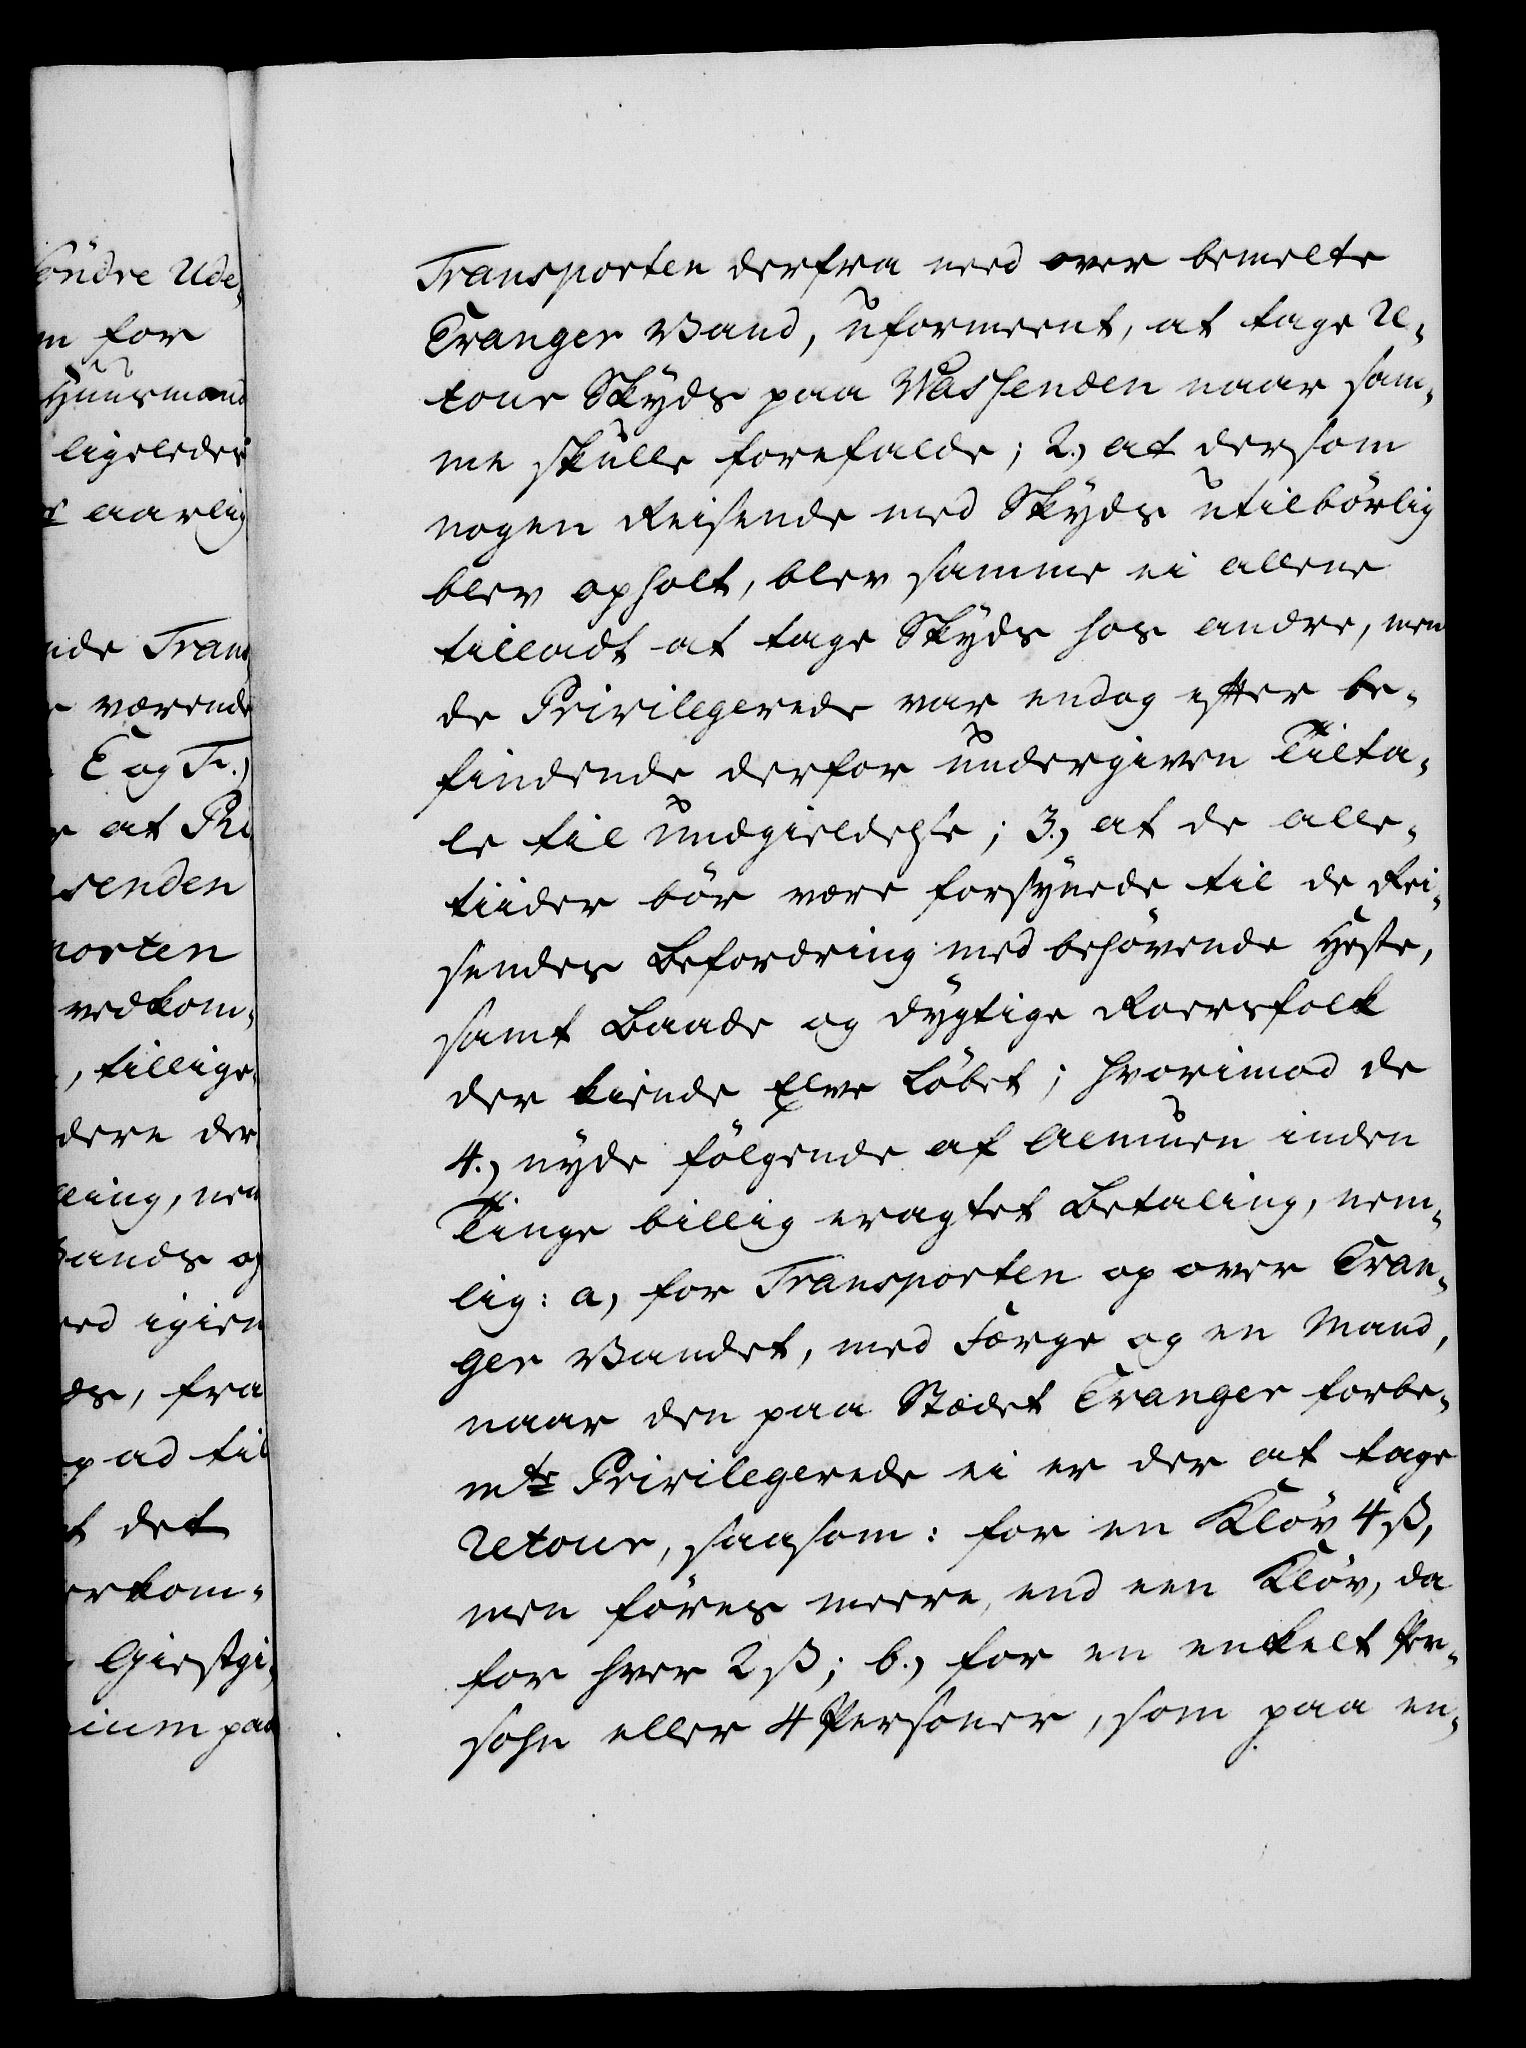 söndre Ude-
m for
Huusmand
ligeledes
aarlig
nde Trans
værende
E og Fr.)
at Pri
senden
porten
vedkom-
, tillige-
dere der
ling, nem
Vands og
ned igien
ds, fra
op ad til
t det
erkom-
Giestgi-
ium paa
Transporten derfra need over bemelte
Tranger Vand, uformeent, at tage Re-
tour Skyds paa Wassenden naar sam-
me skulle forefalde; 2.) at dersom
nogen Reisende med Skyds utilbörlig
blev opholt, blev samme ei allene
tilladt at tage Skyds hos andre, men
de Privilegerede var endog efter be-
findende derfor undergiven Tilta-
le til undgieldelse; 3.) at de alle-
tiider bör være forsynede til de Rei-
sendes Befordring med behövende Heste,
samt Baade og dygtige Roersfolk
der kiende Elve Löbet; hvorimod de
4.) nyde fölgende af Almuen inden
Tinge billig eragtet Betaling, nem-
lig: a, for Transporten op over Tran-
ger Vandet, med Færge og en Mand,
naar den paa Stædet Tranger forbe-
mte Privilegerede ei er der at tage
Retour, saasom: for en Klöv 4 ß,
men föres meere, end een Klöv, da
for hver 2 ß; b.) for en enkelt Per-
sohn eller 4 Personer, som paa en-